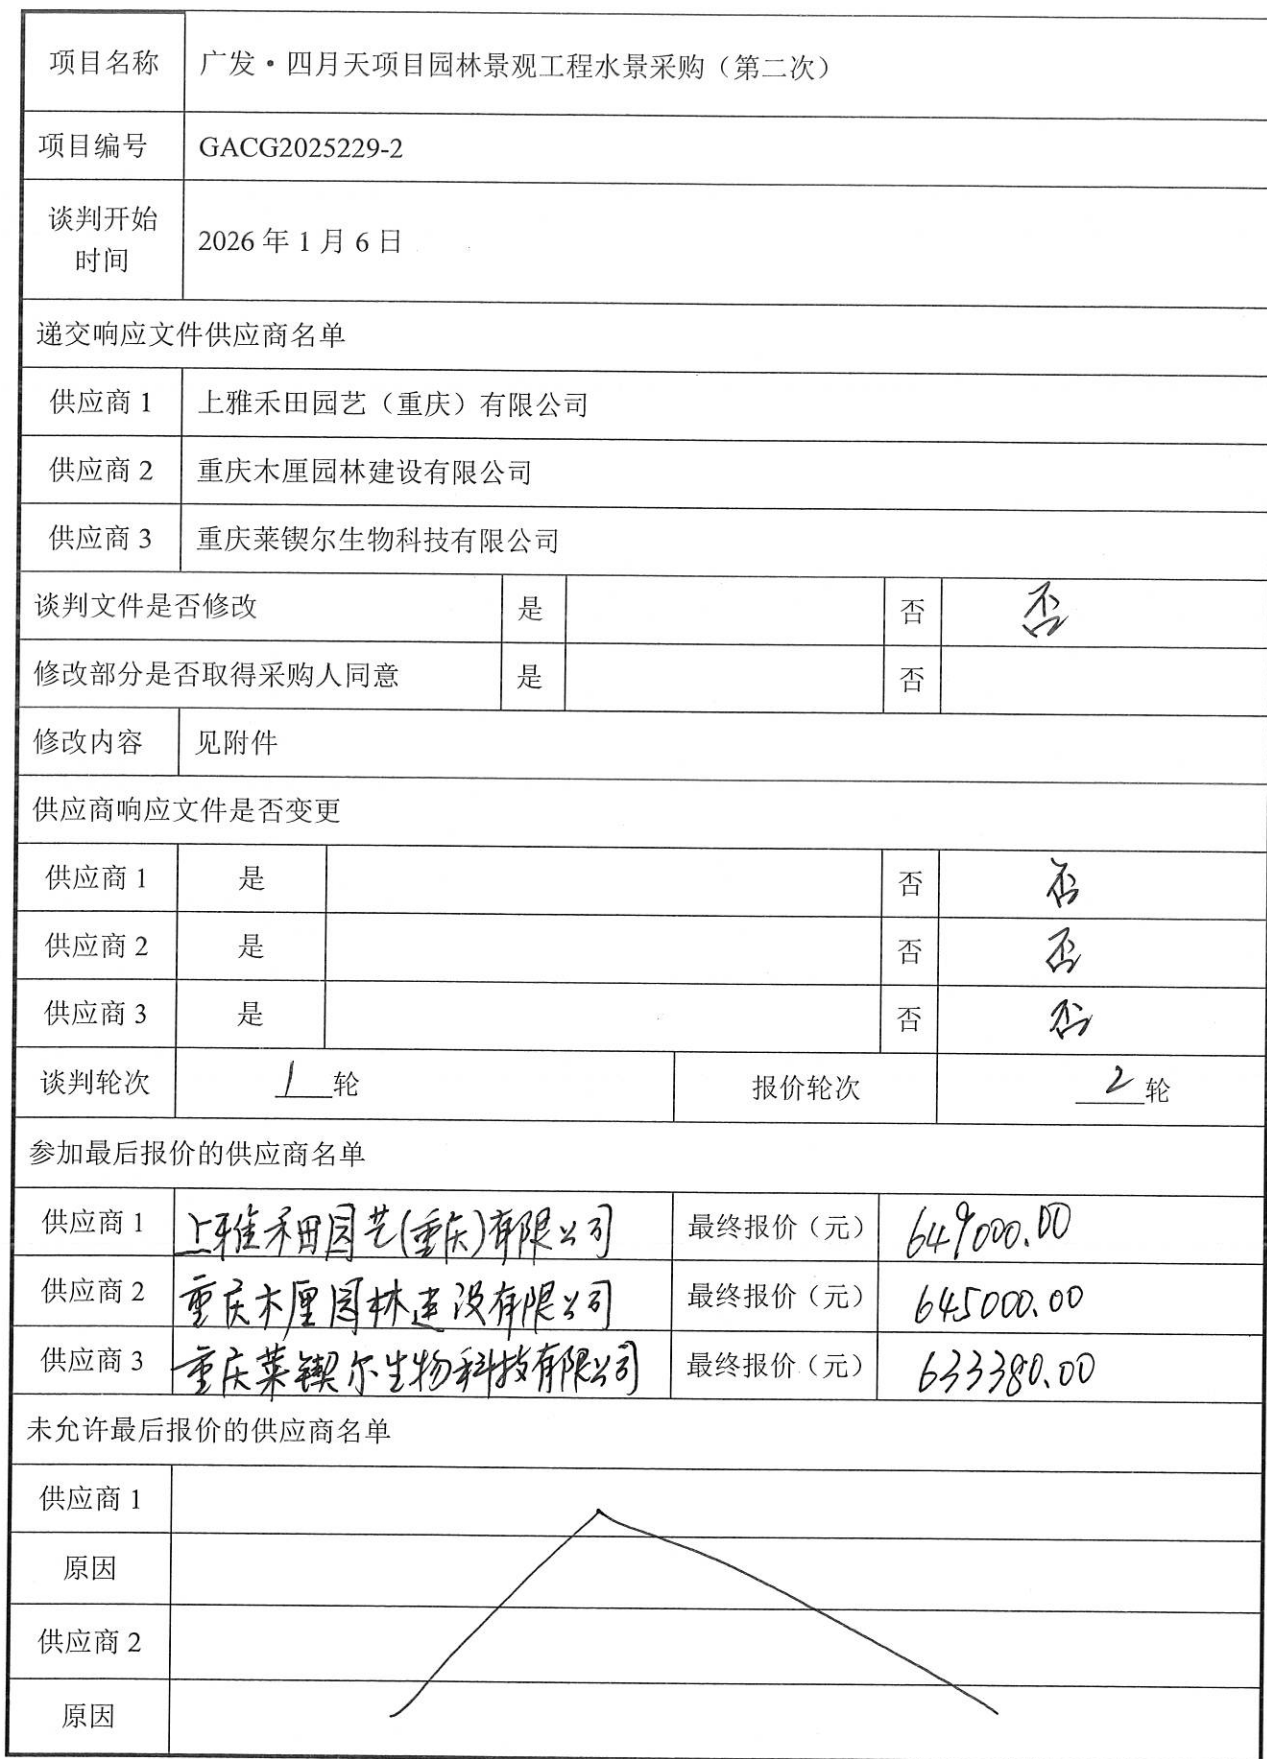 项目名称 广发·四月天项目园林景观工程水景采购（第二次）
项目编号 GACG2025229-2
谈判开始
时间
2026 年 1 月 6 日
递交响应文件供应商名单
供应商 1 上雅禾田园艺（重庆）有限公司
供应商 2 重庆木厘园林建设有限公司
供应商 3 重庆莱锲尔生物科技有限公司
谈判文件是否修改 是 否 否
修改部分是否取得采购人同意 是 否
修改内容 见附件
供应商响应文件是否变更
供应商 1 是 否 否
供应商 2 是 否 否
供应商 3 是 否 否
谈判轮次 1 轮 报价轮次 2 轮
参加最后报价的供应商名单
供应商 1 上雅禾田园艺(重庆)有限公司 最终报价（元） 649000.00
供应商 2 重庆木厘园林建设有限公司 最终报价（元） 645000.00
供应商 3 重庆莱锲尔生物科技有限公司 最终报价（元） 633380.00
未允许最后报价的供应商名单
供应商 1
原因
供应商 2
原因